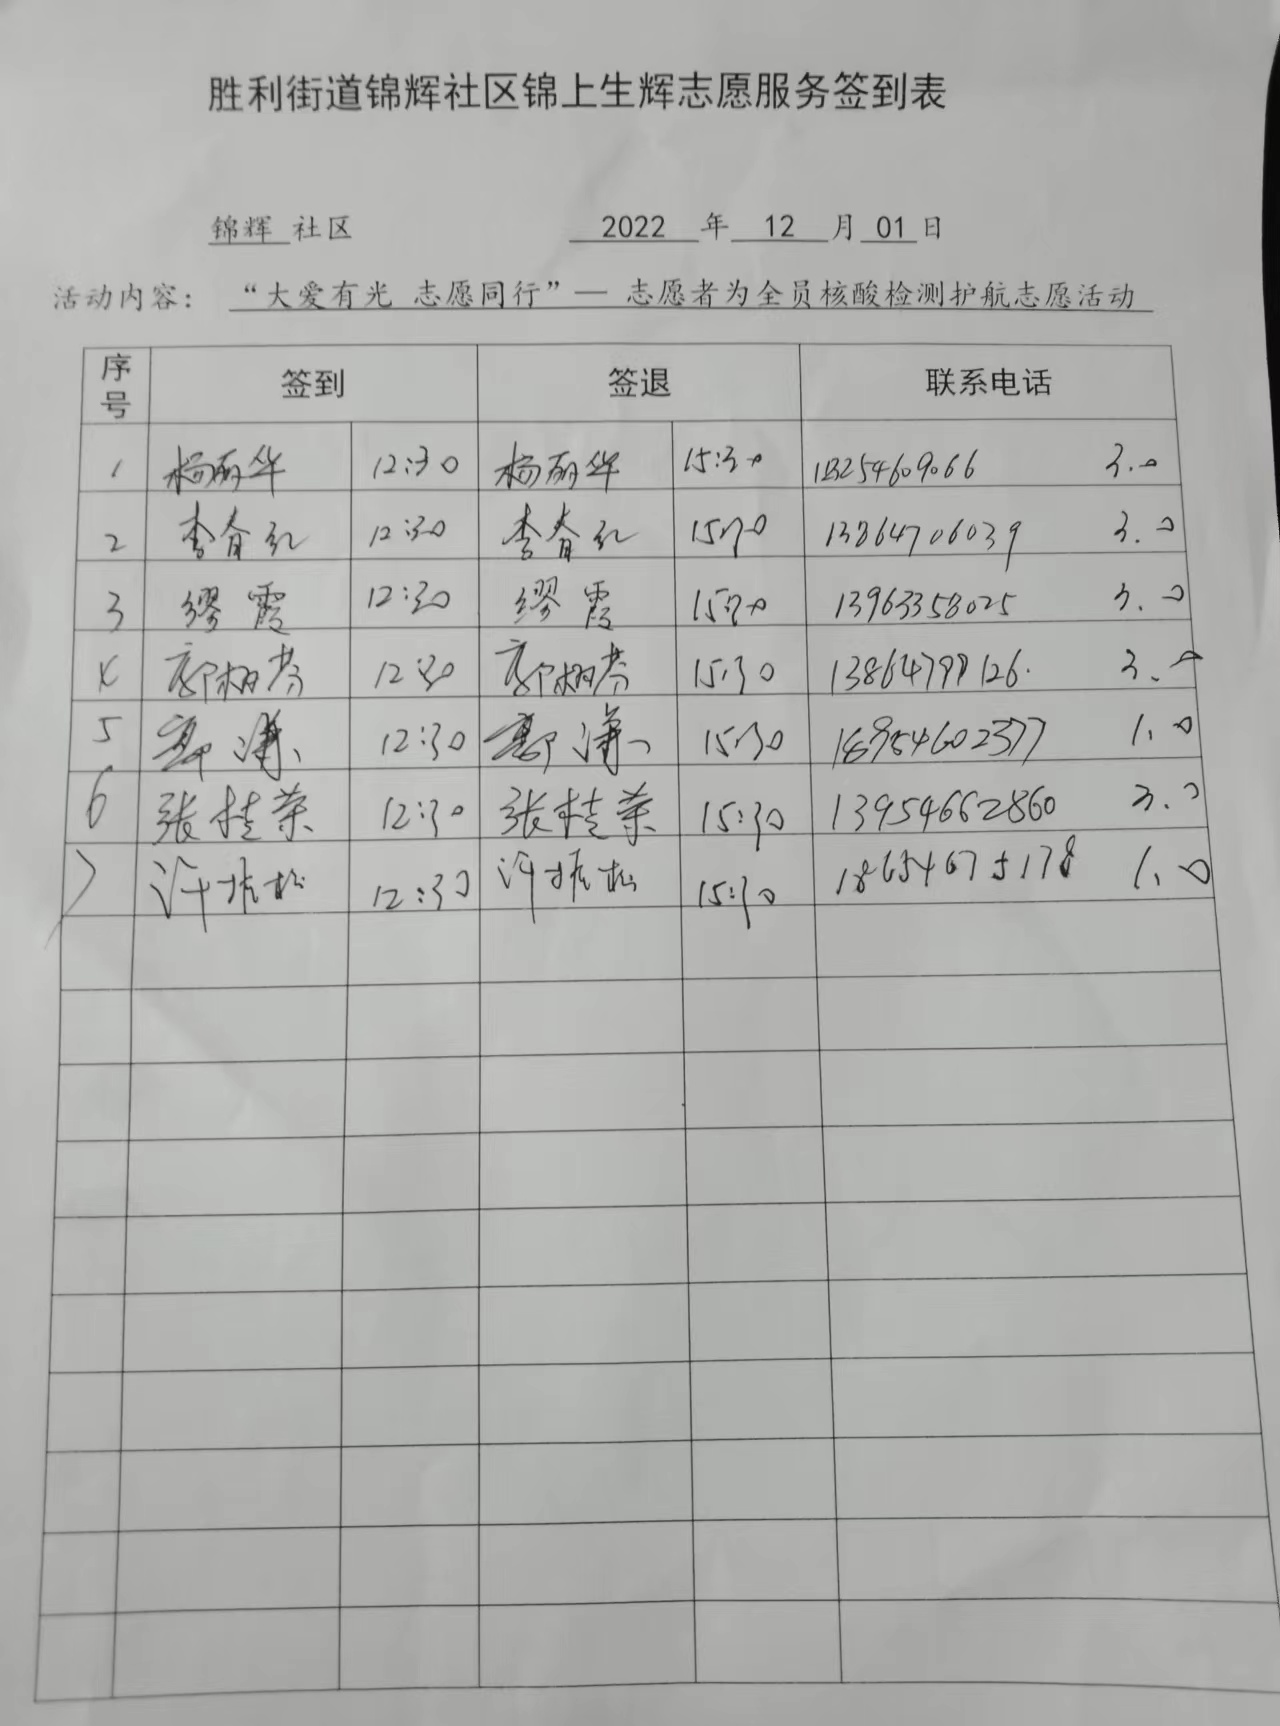 胜利街道锦辉社区锦上生辉志愿服务签到表
锦辉 社区 2022 年 12 月 01 日
活动内容: “大爱有光 志愿同行”— 志愿者为全员核酸检测护航志愿活动
序号 签到 签退 联系电话
1 杨丽华 12:30 杨丽华 15:30 3.0
2 李春红 12:30 李春红 15:30 13864706039 3.0
3 缪霞 12:30 缪霞 15:30 13963358025 3.0
4 12:30 15:30 3.0
5 郭潇 12:30 郭潇 15:30 18954602377 1.0
6 张桂荣 12:30 张桂荣 15:30 13954662860 3.0
7 许 松 12:30 许 松 15:30 18654675178 1.0